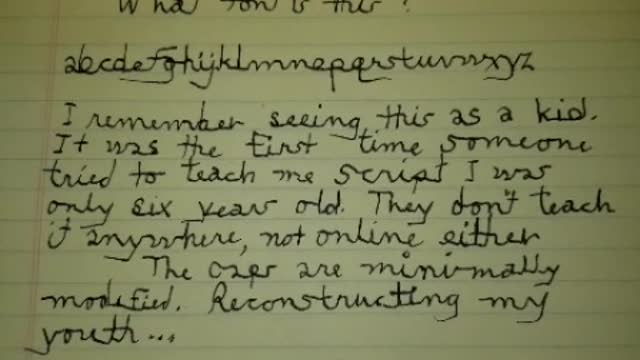 What font is this?
abcdefghijklmnopqrstuvwxyz
I remember seeing this as a kid.
It was the first time someone
tried to teach me script I was
only six year old. They don't teach
it anywhere, not online either
The caps are minimally
modified. Reconstructing my
youth...